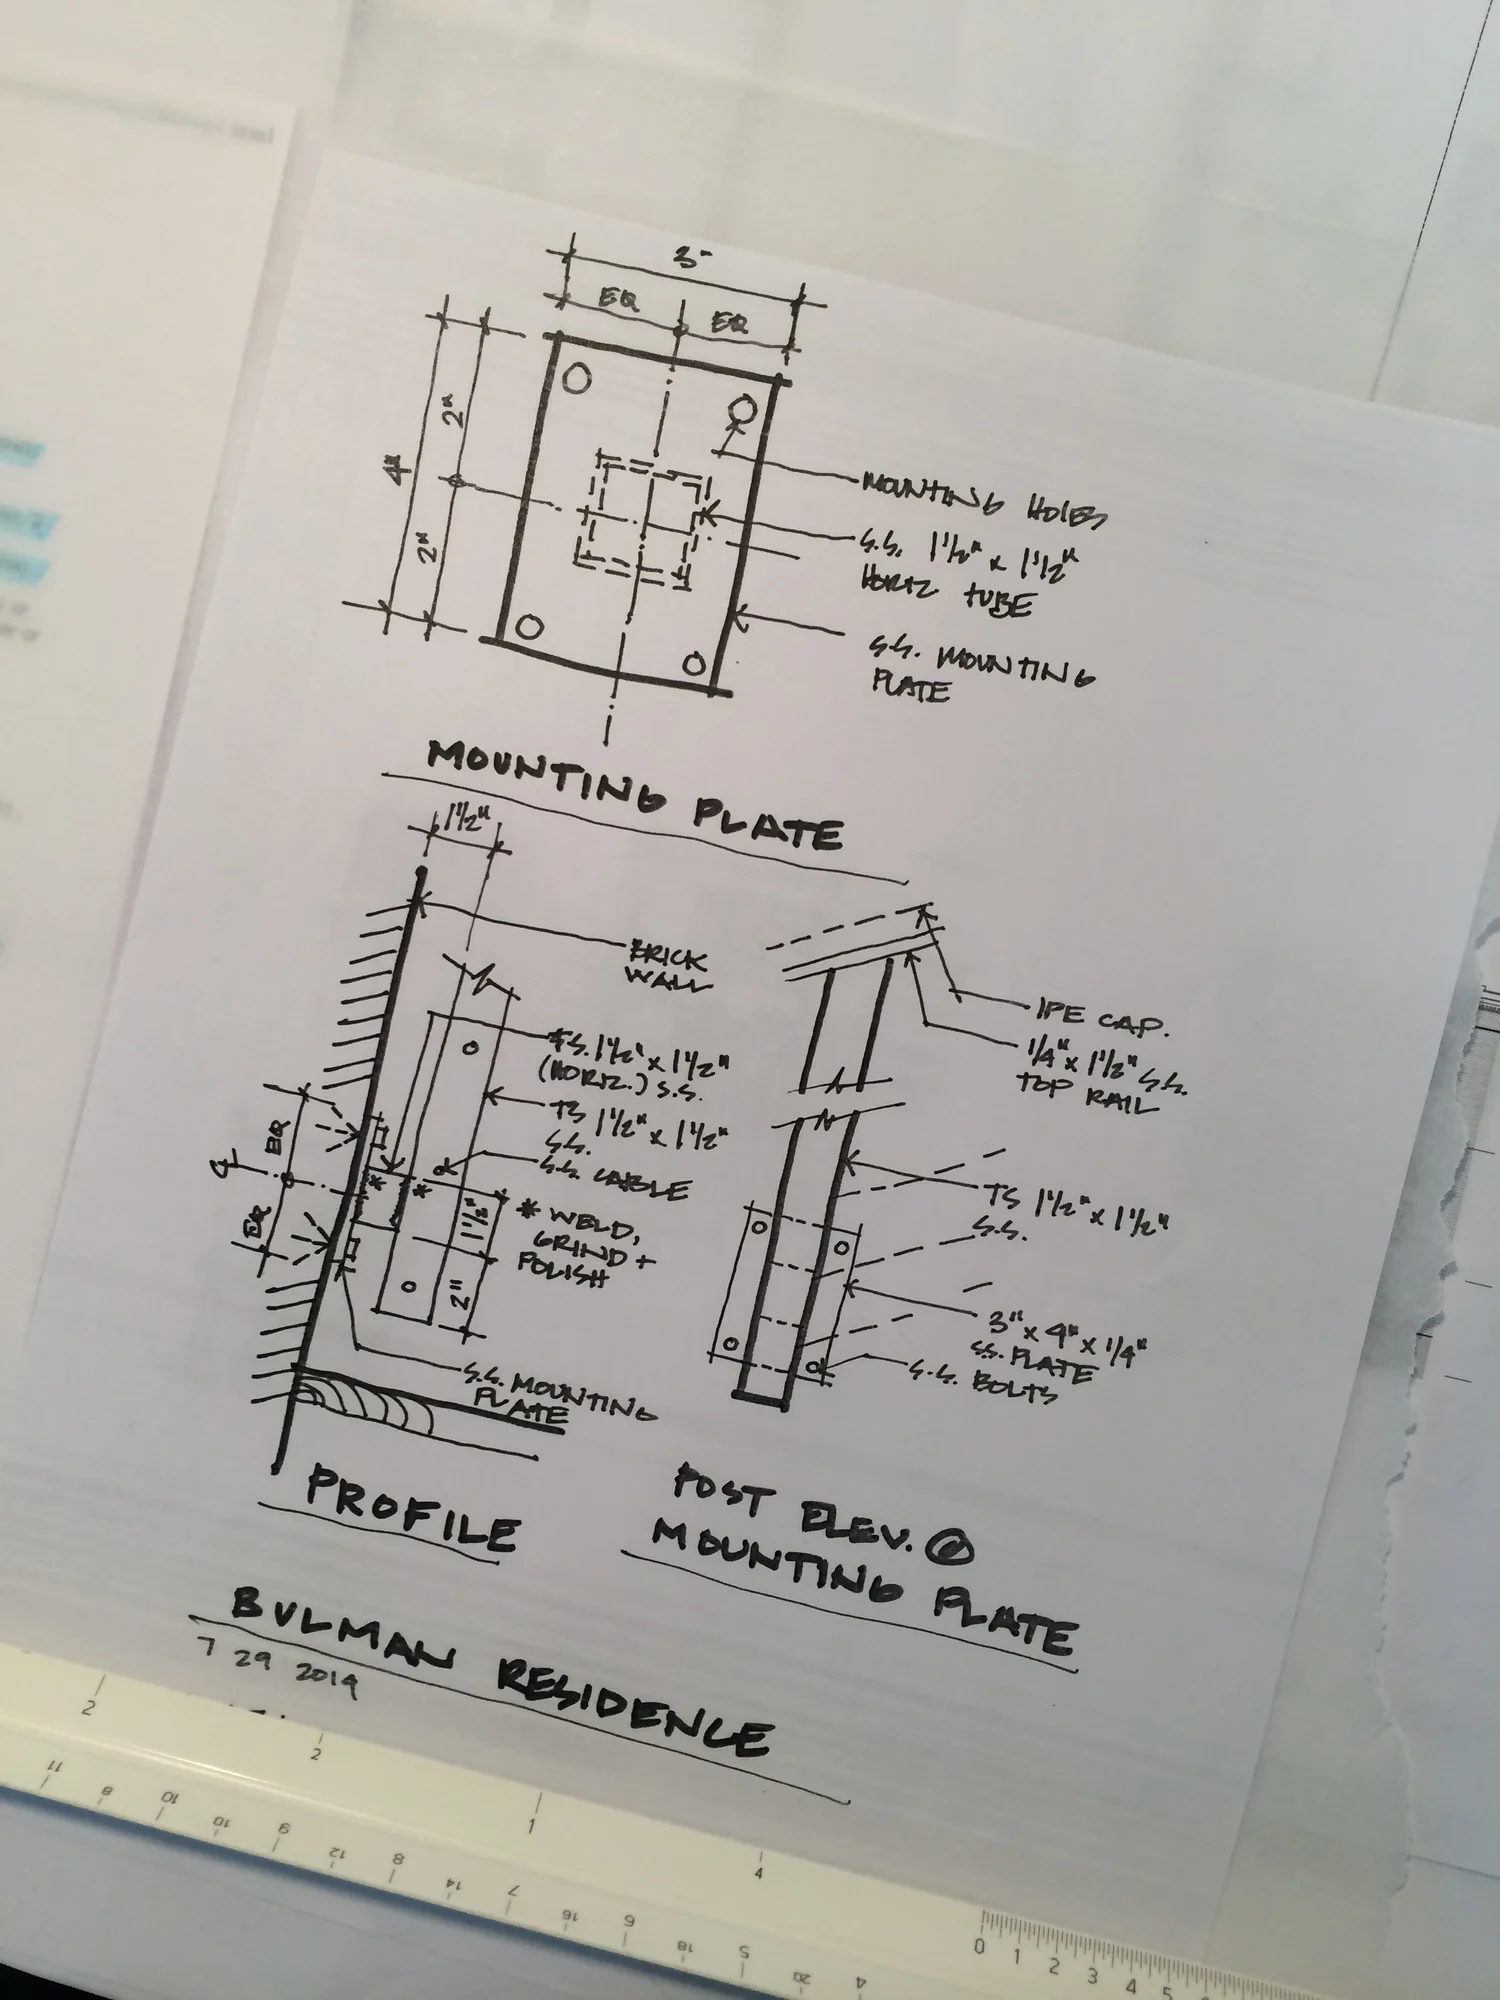 3"
EQ
EQ
2"
4"
2"
MOUNTING HOLES
S.S. 1 1/2" x 1 1/2"
HORIZ TUBE
S.S. MOUNTING
PLATE
MOUNTING PLATE
1 1/2"
BRICK
WALL
(HORIZ.) S.S.
TS 1 1/2" x 1 1/2"
S.S.
S.S. CABLE
EQ
EQ
*
*
1 1/2"
2"
* WELD,
GRIND +
POLISH
S.S. MOUNTING
PLATE
PROFILE
IPE CAP.
1/4" x 1 1/2" S.S.
TOP RAIL
TS 1 1/2" x 1 1/2"
S.S.
3" x 4" x 1/4"
S.S. PLATE
S.S. BOLTS
POST ELEV. @
MOUNTING PLATE
BULMAN RESIDENCE
7 29 2019
2
2
1
4
11
8
10
10
9
12
8
14
7
16
6
18
5
20
4
0 1 2 3 4 5